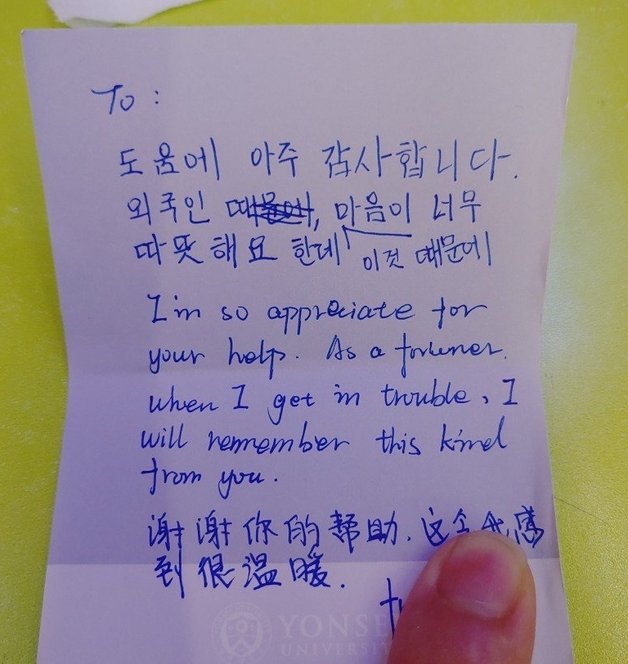 To :
도움에 아주 감사합니다.
외국인 , 마음이 너무
따뜻해요 한데 이것 때문에
I'm so appreciate for
your help. As a foriener.
when I get in trouble, I
will remember this kind
from you.
谢谢你的帮助. 这令我感
到很温暖.
YONSE
UNIVERSIT